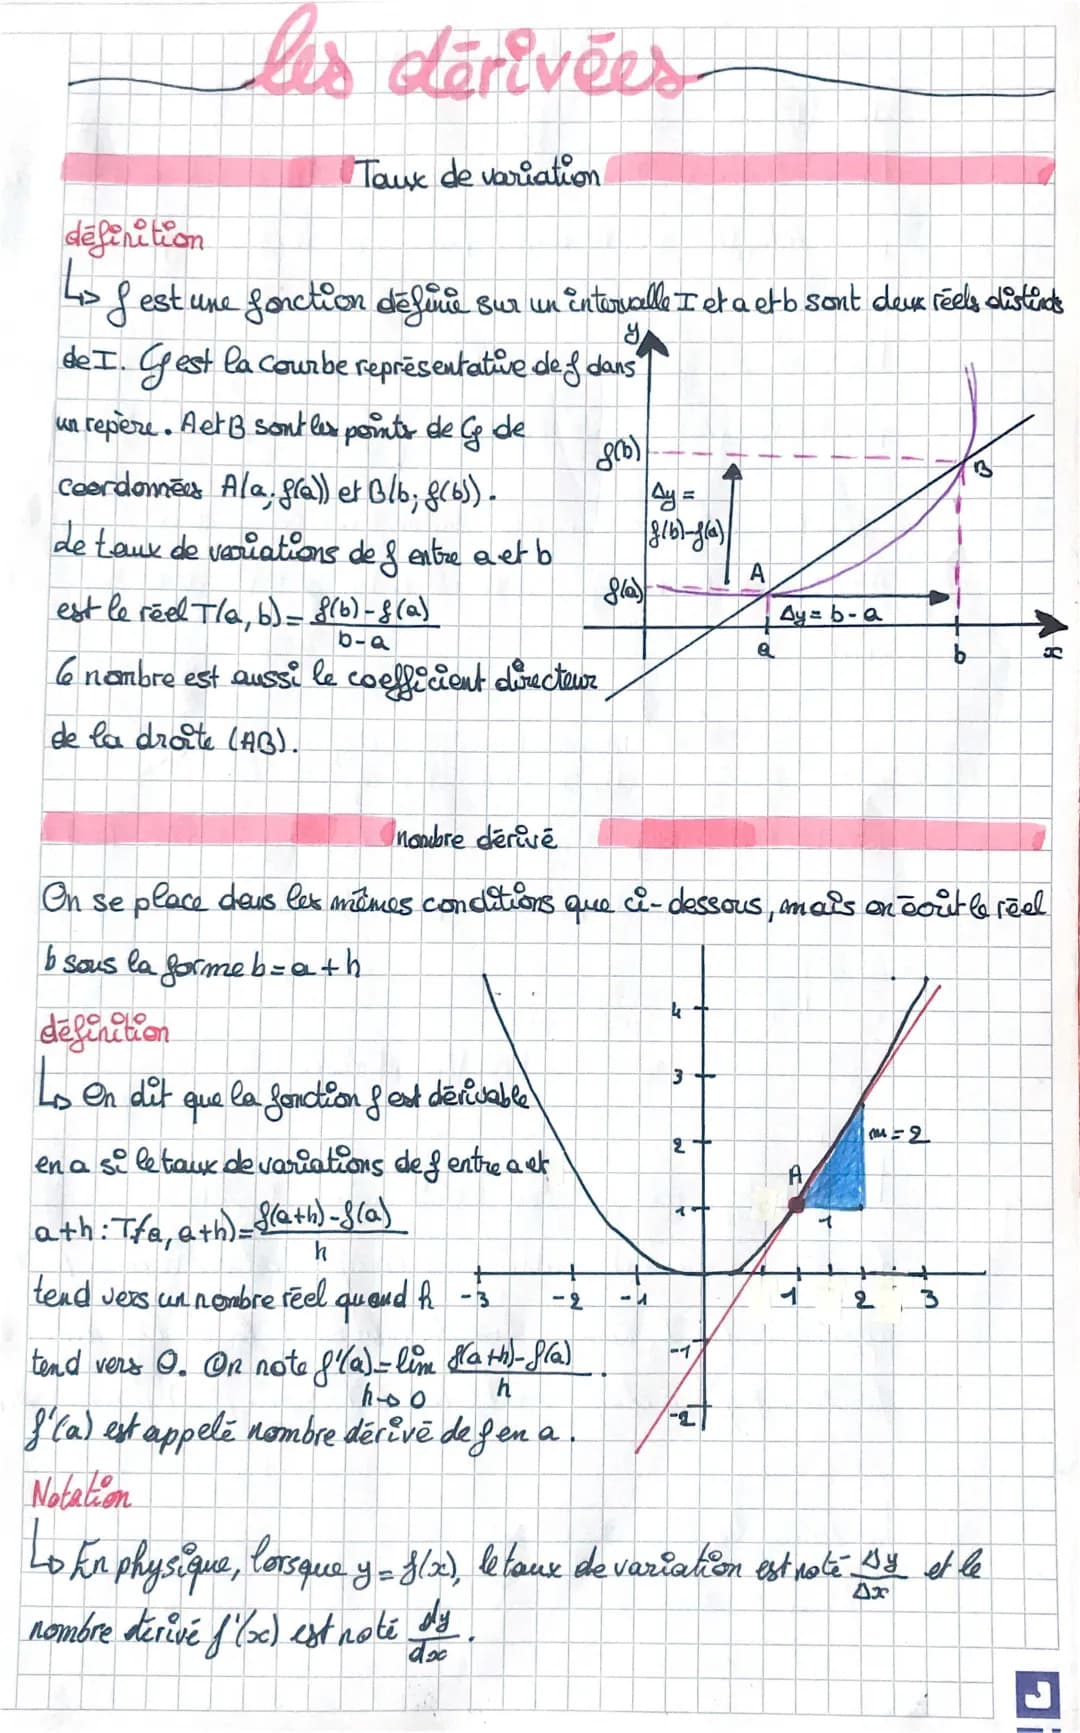 les dérivées
Taux de variation
définition
↳ f est une fonction définie sur un intervalle I et a et b sont deux réels distincts
de I. Cf est la courbe représentative de f dans
un repère. A et B sont les points de Cf de
coordonnées A(a; f(a)) et B(b; f(b)).
de taux de variations de f entre a et b
est le réel T(a, b) = f(b) - f(a)
b - a
Ce nombre est aussi le coefficient directeur
de la droite (AB).
y
f(b)
B
Δy =
f(b)-f(a)
f(a)
A
Δy = b - a
a
b
x
nombre dérivé
On se place dans les mêmes conditions que ci-dessous, mais on écrit le réel
b sous la forme b = a + h
définition
↳ On dit que la fonction f est dérivable
en a si le taux de variations de f entre a et
a+h : T(a, a+h) = f(a+h) - f(a)
h
tend vers un nombre réel quand h
tend vers 0. On note f'(a) = lim f(a+h) - f(a) .
h→0 h
f'(a) est appelé nombre dérivé de f en a.
4
3
2
1
m = 2
A
1
-3 -2 -1 1 2 3
-1
-2
Notation
↳ En physique, lorsque y = f(x), le taux de variation est noté Δy et le
Δx
nombre dérivé f'(x) est noté dy .
dx
J